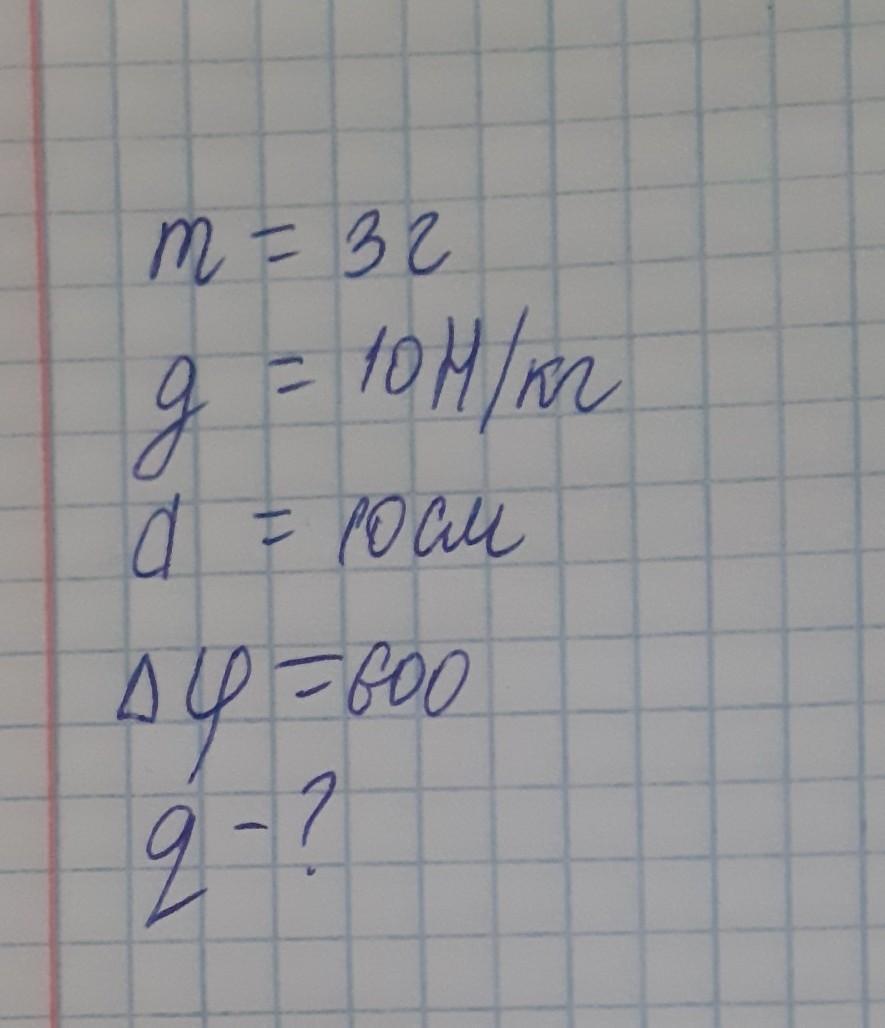 m = 3г
g = 10Н/кг
d = 10см
Δφ = 600
q - ?